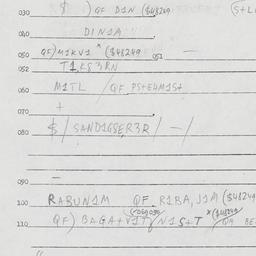 030 $ ) QF D1N ($48249 (S+L
040 DIN1A
050 QF) M1KV1 * ($48249 051 —
052 T1,KS3RN
060 M1TL / QF PS+E4M1S+
070 +
080 $ / SAND1GSER3R / — /
090 —
100 RABUN1M QF R1BA, J1M ($48249
110 QF) BAGA+V1T / N1S+T / Q9 BE